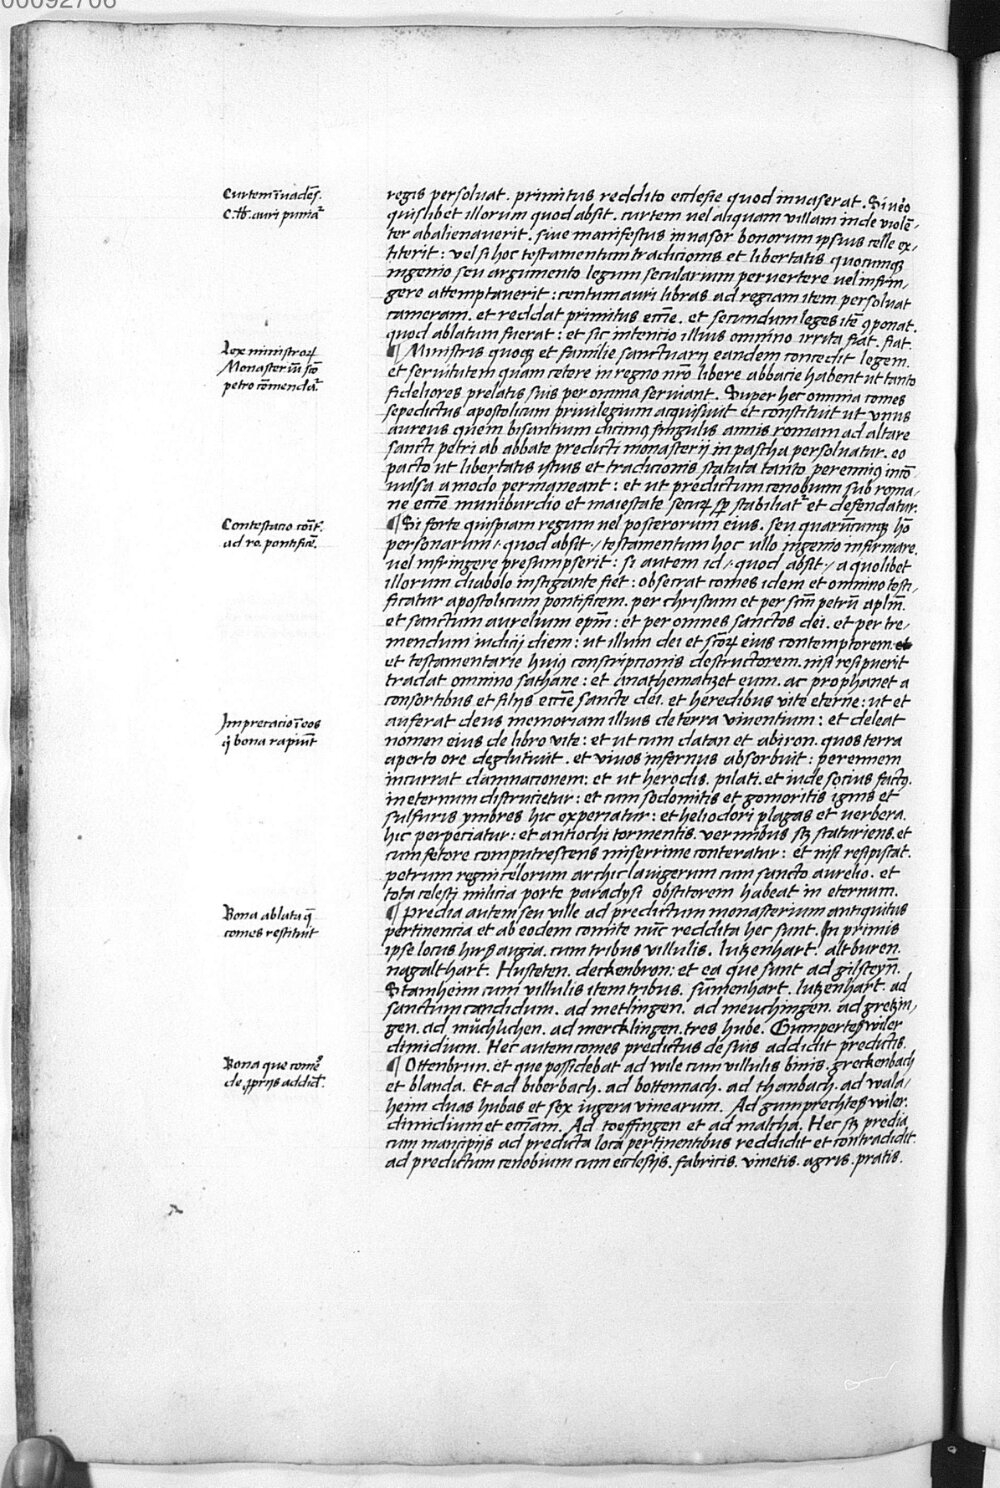 00092706
Curtem īvadēs.
C. lb. auri puniat᷑
regis persoluat. primitus reddito ecclesie quod inuaserat. Si uero
quislibet illorum quod absit. curtem uel aliquam villam inde violē-
ter abalienauerit. siue manifestus inuasor bonorum ipsius celle ex-
titerit: vel si hoc testamentum tradicionis et libertatis quocumqꝫ
ingenio seu argumento legum secularium peruertere uel infrin-
gere attemptauerit: centum auri libras ad regiam item persoluat
cameram. et reddat primitus eccīe. et secundum leges itē ꝯponat.
quod ablatum fuerat: et sic intencio illius omnino irrita fiat. fiat.
Lex ministroꝝ
Monasteriū sto
petro cōmendat᷑
¶ Ministris quoqꝫ et familie sanctuarij eandem concedit legem.
et seruitutem quam cetere in regno nr̄o libere abbacie habent ut tanto
fideliores prelatis suis per omnia seruiant. Super hec omnia comes
sepedictus apostolicum priuilegium acquisiuit et constituit ut vnus
aureus quem bisantium dicimꝰ singulis annis romam ad altare
sancti petri ab abbate predicti monasterij in pascha persoluatur. eo
pacto ut libertatis istius et tradicionis statuta tanto perennius incō-
uulsa a modo permaneant: et ut predictum cenobium sub roma-
ne eccīe muniburdio et maiestate secuꝝ sꝑ stabiliat᷑ et defendatur.
Contestacio comīt.
ad ro. pontificē.
¶ Si forte quispiam regum uel posterorum eius. seu quarūcumqꝫ ho
personarum. quod absit. testamentum hoc ullo ingenio infirmare.
uel infringere presumpserit: si autem id. quod absit. a quolibet
illorum diabolo instigante fiet: obsecrat comes idem et omnino testi-
ficatur apostolicum pontificem. per christum et per scm̄ petrū aplm̄.
et sanctum aurelium epm̄: et per omnes sanctos dei. et per tre-
mendum iudicij diem: ut illum dei et scōꝝ eius contemptorem et
et testamentarie huiꝰ conscriptionis destructorem. nisi resipuerit
tradat omnino sathane: et anathematizet eum. ac prophanet a
consortibus et filijs eccīe sancte dei. et heredibus vite eterne: ut et
Imprecacio ī eos
q̄ bona rapiūt
auferat deus memoriam illius de terra viuentium: et deleat
nomen eius de libro vite: et ut cum datan et abiron. quos terra
aperto ore deglutiuit. et viuos infernus absorbuit: perennem
incurrat damnacionem: et ut herodis. pilati. et iude socius factꝰ.
in eternum distrucietur: et cum sodomitis et gomoritis ignis et
sulfuris ymbres hic experiatur: et heliodori plagas et verbera.
hic perpeciatur: et antiochi tormentis. vermibus sꝫ scaturiens. et
cum fetore computrescens miserrime conteratur: et nisi resipiscat.
petrum regni celorum archiclauigerum cum sancto aurelio. et
tota celesti milicia porte paradysi obsistorem habeat in eternum.
Bona ablata q̄
comes restituit
¶ Predia autem seu ville ad predictum monasterium antiquitus
pertinencia et ab eodem comite nūc reddita hec sunt. In primis
ipse locus hirsaugia. cum tribus villulis. lutzenhart. altburen.
nagalthart. Husteten. deckenbron: et ea que sunt ad gilsteyn̄.
Stamheim cum villulis item tribus. sūmenhart. lutzenhart. ad
sanctum candidum. ad metlingen. ad meuchingen. ad gretzin-
gen. ad mu̇chlichen. ad mercklingen. tres hube. Gumperteswiler
dimidium. Hec autem comes predictus de suis addidit predictis.
Bona que comes
de ꝓprijs addidt.
¶ Ottenbrun. et que possidebat ad wile cum villulis binis. greckenbach
et blanda. Et ad biberbach. ad bottennach. ad thanbach. ad wala-
heim duas hubas et sex iugera vinearum. Ad gumprechteswiler.
dimidium et ecciam. Ad toeffingen et ad malcha. Hec sꝫ predia
cum mancipijs ad predicta loca pertinentibus reddidit et contradidit.
ad predictum cenobium cum ecclesijs. fabricis. vinetis. agris. pratis.